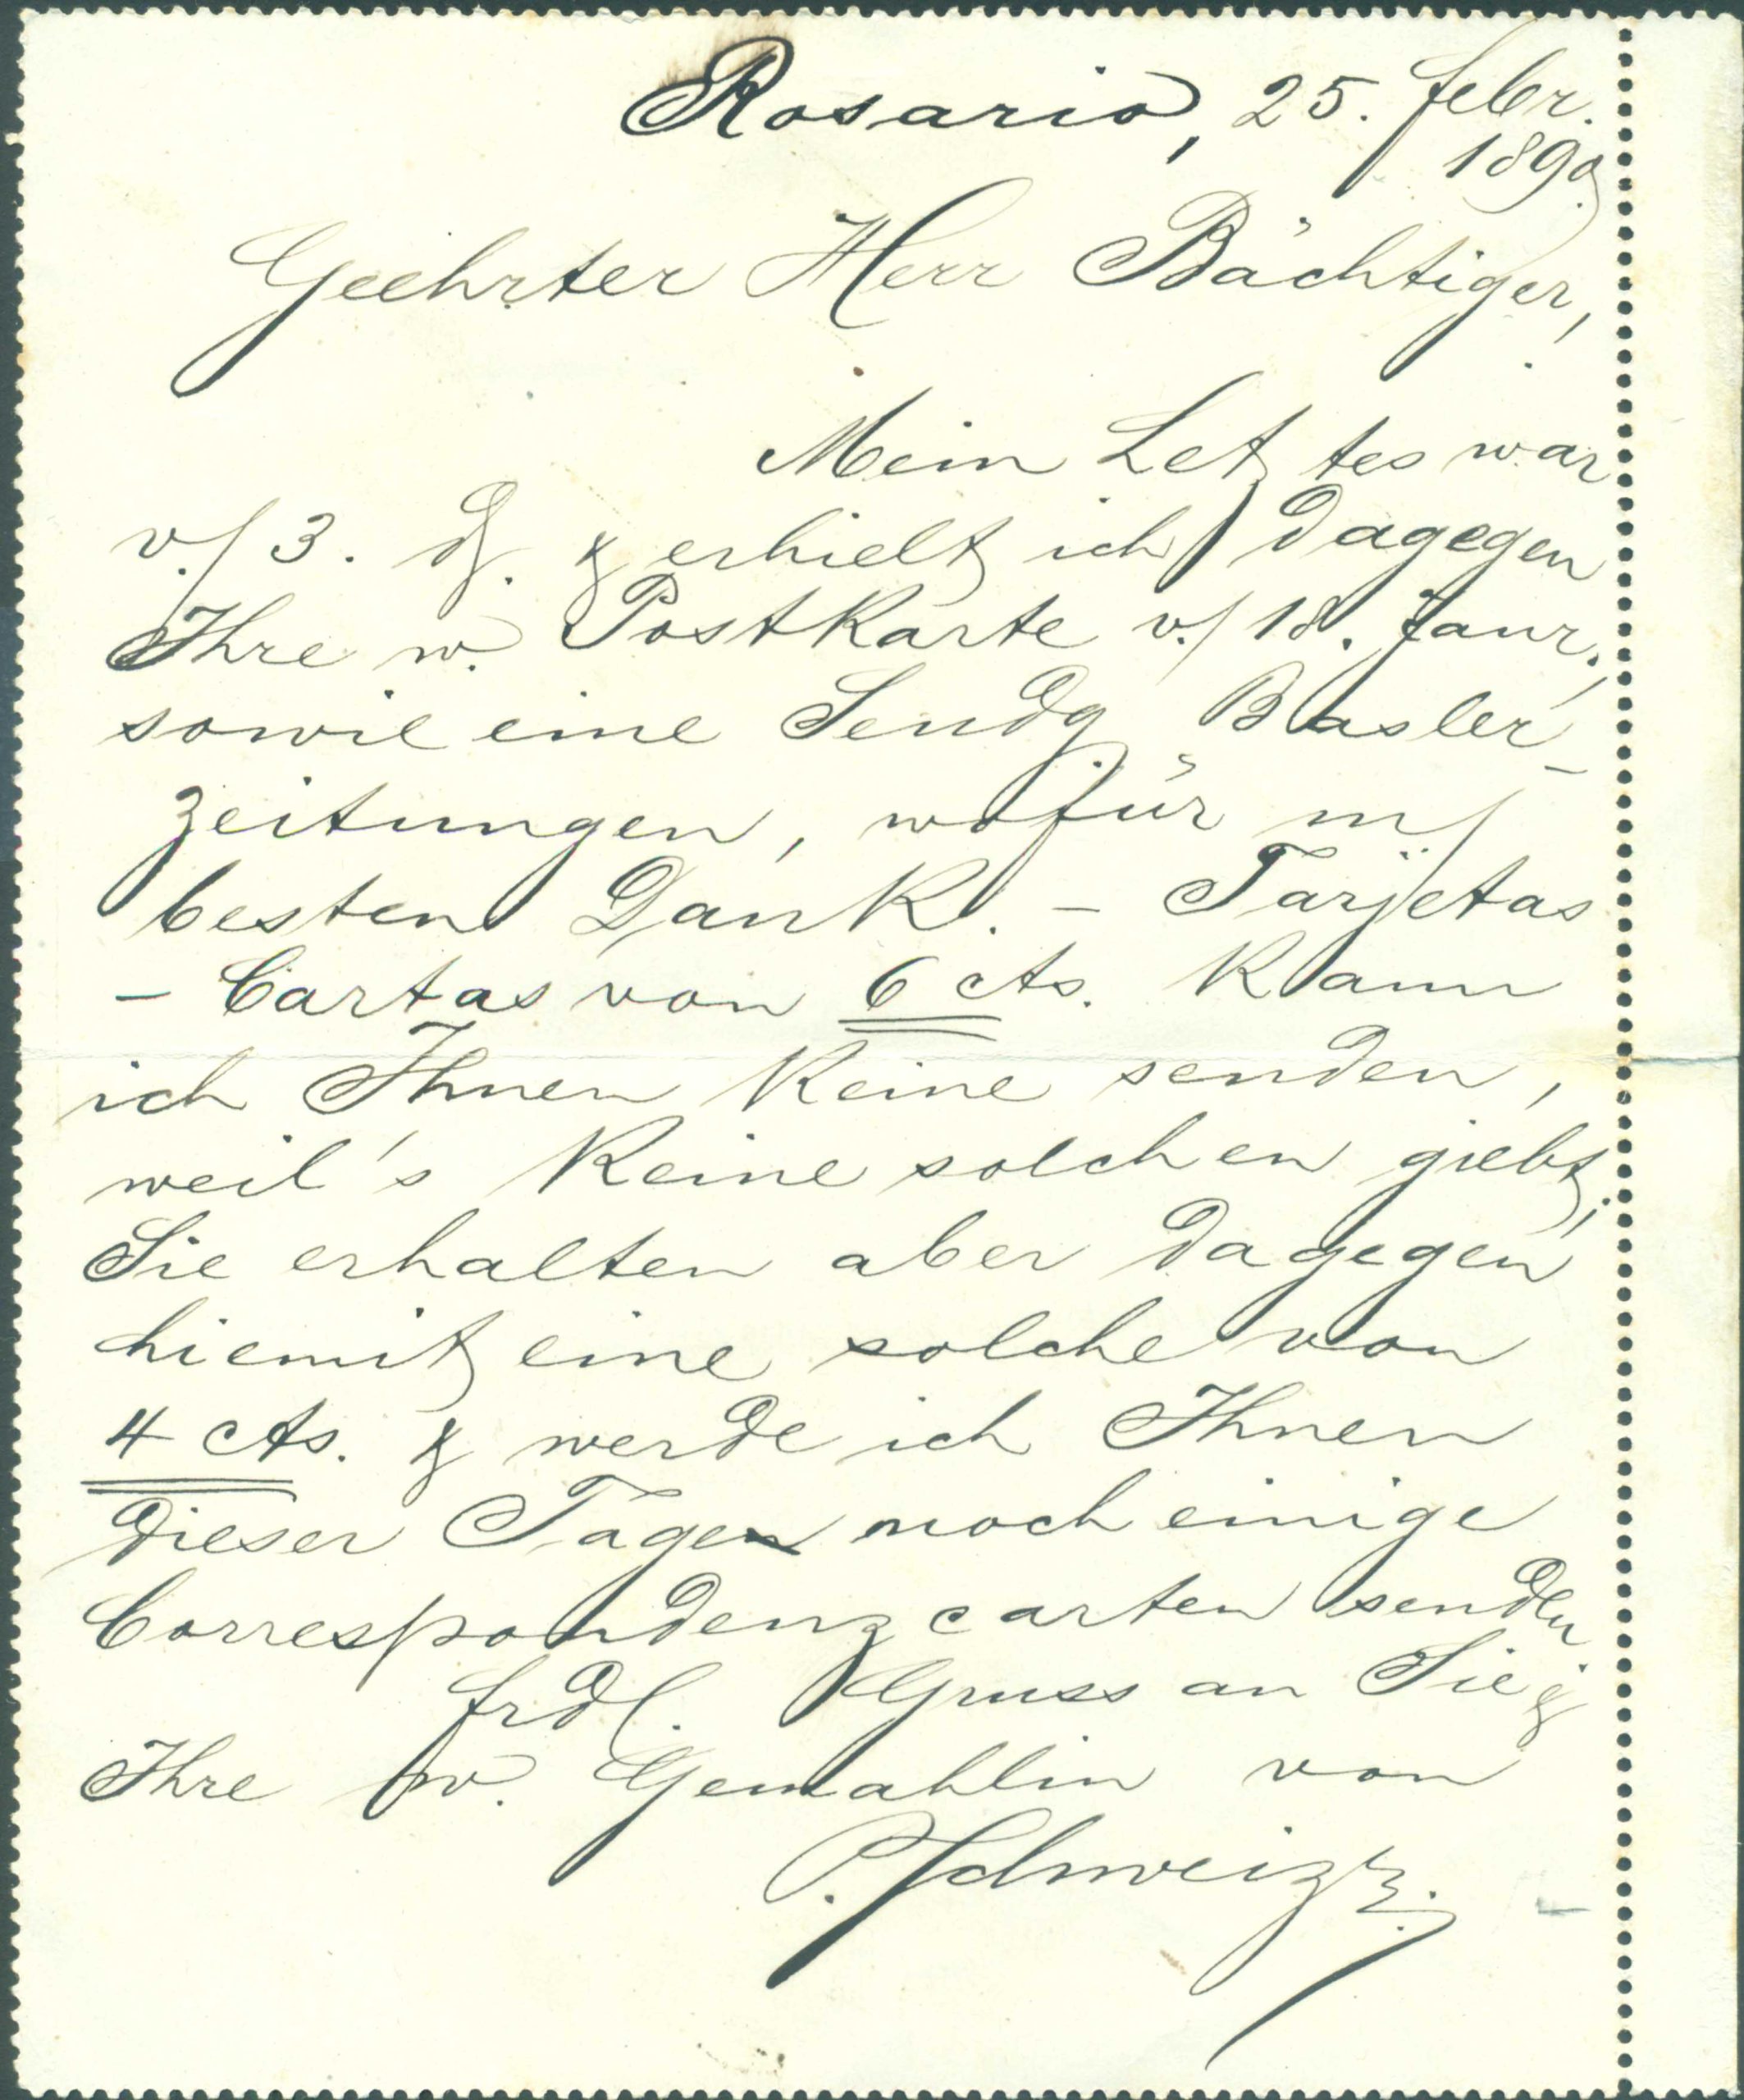 Rosario, 25. Febr.
1890.
Geehrter Herr Bächtiger,
Mein Letztes war
v/ 3. ds. & erhielt ich dagegen
Ihre w. Postkarte v/ 18. Janr.,
sowie eine Sendg. Basler-
zeitungen, wofür m/
besten Dank. - Tarjetas
- Cartas von 6 cts. kann
ich Ihnen keine senden,
weil's keine solchen giebt;
Sie erhalten aber dagegen
hiemit eine solche von
4 cts. & werde ich Ihnen
dieser Tage noch einige
Correspondenzcarten senden
frdl. Gruss an Sie &
Ihre w. Gemahlin von
P. Schweizer.